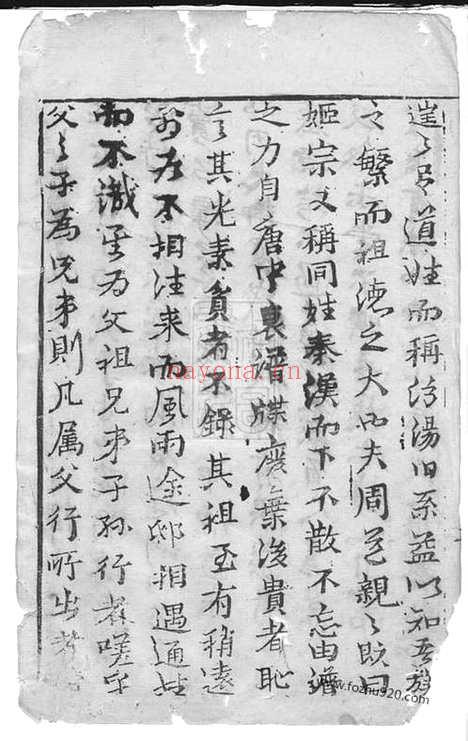 道姓而稱汾湯旧系益以知吾族
之繁而祖德之大也夫周道親々既曰
姬宗又稱同姓秦漢而下不散不忘由譜
之力自唐中衰譜牒廢棄後貴者恥
言其先素貧者不錄其祖至有稍遠
不相往来而風雨途邸相遇通
而不識其为父祖兄弟子孙行者嗟乎
父之子為兄弟則凡属父行所出者
nayona.cn
www.fozhu920.com